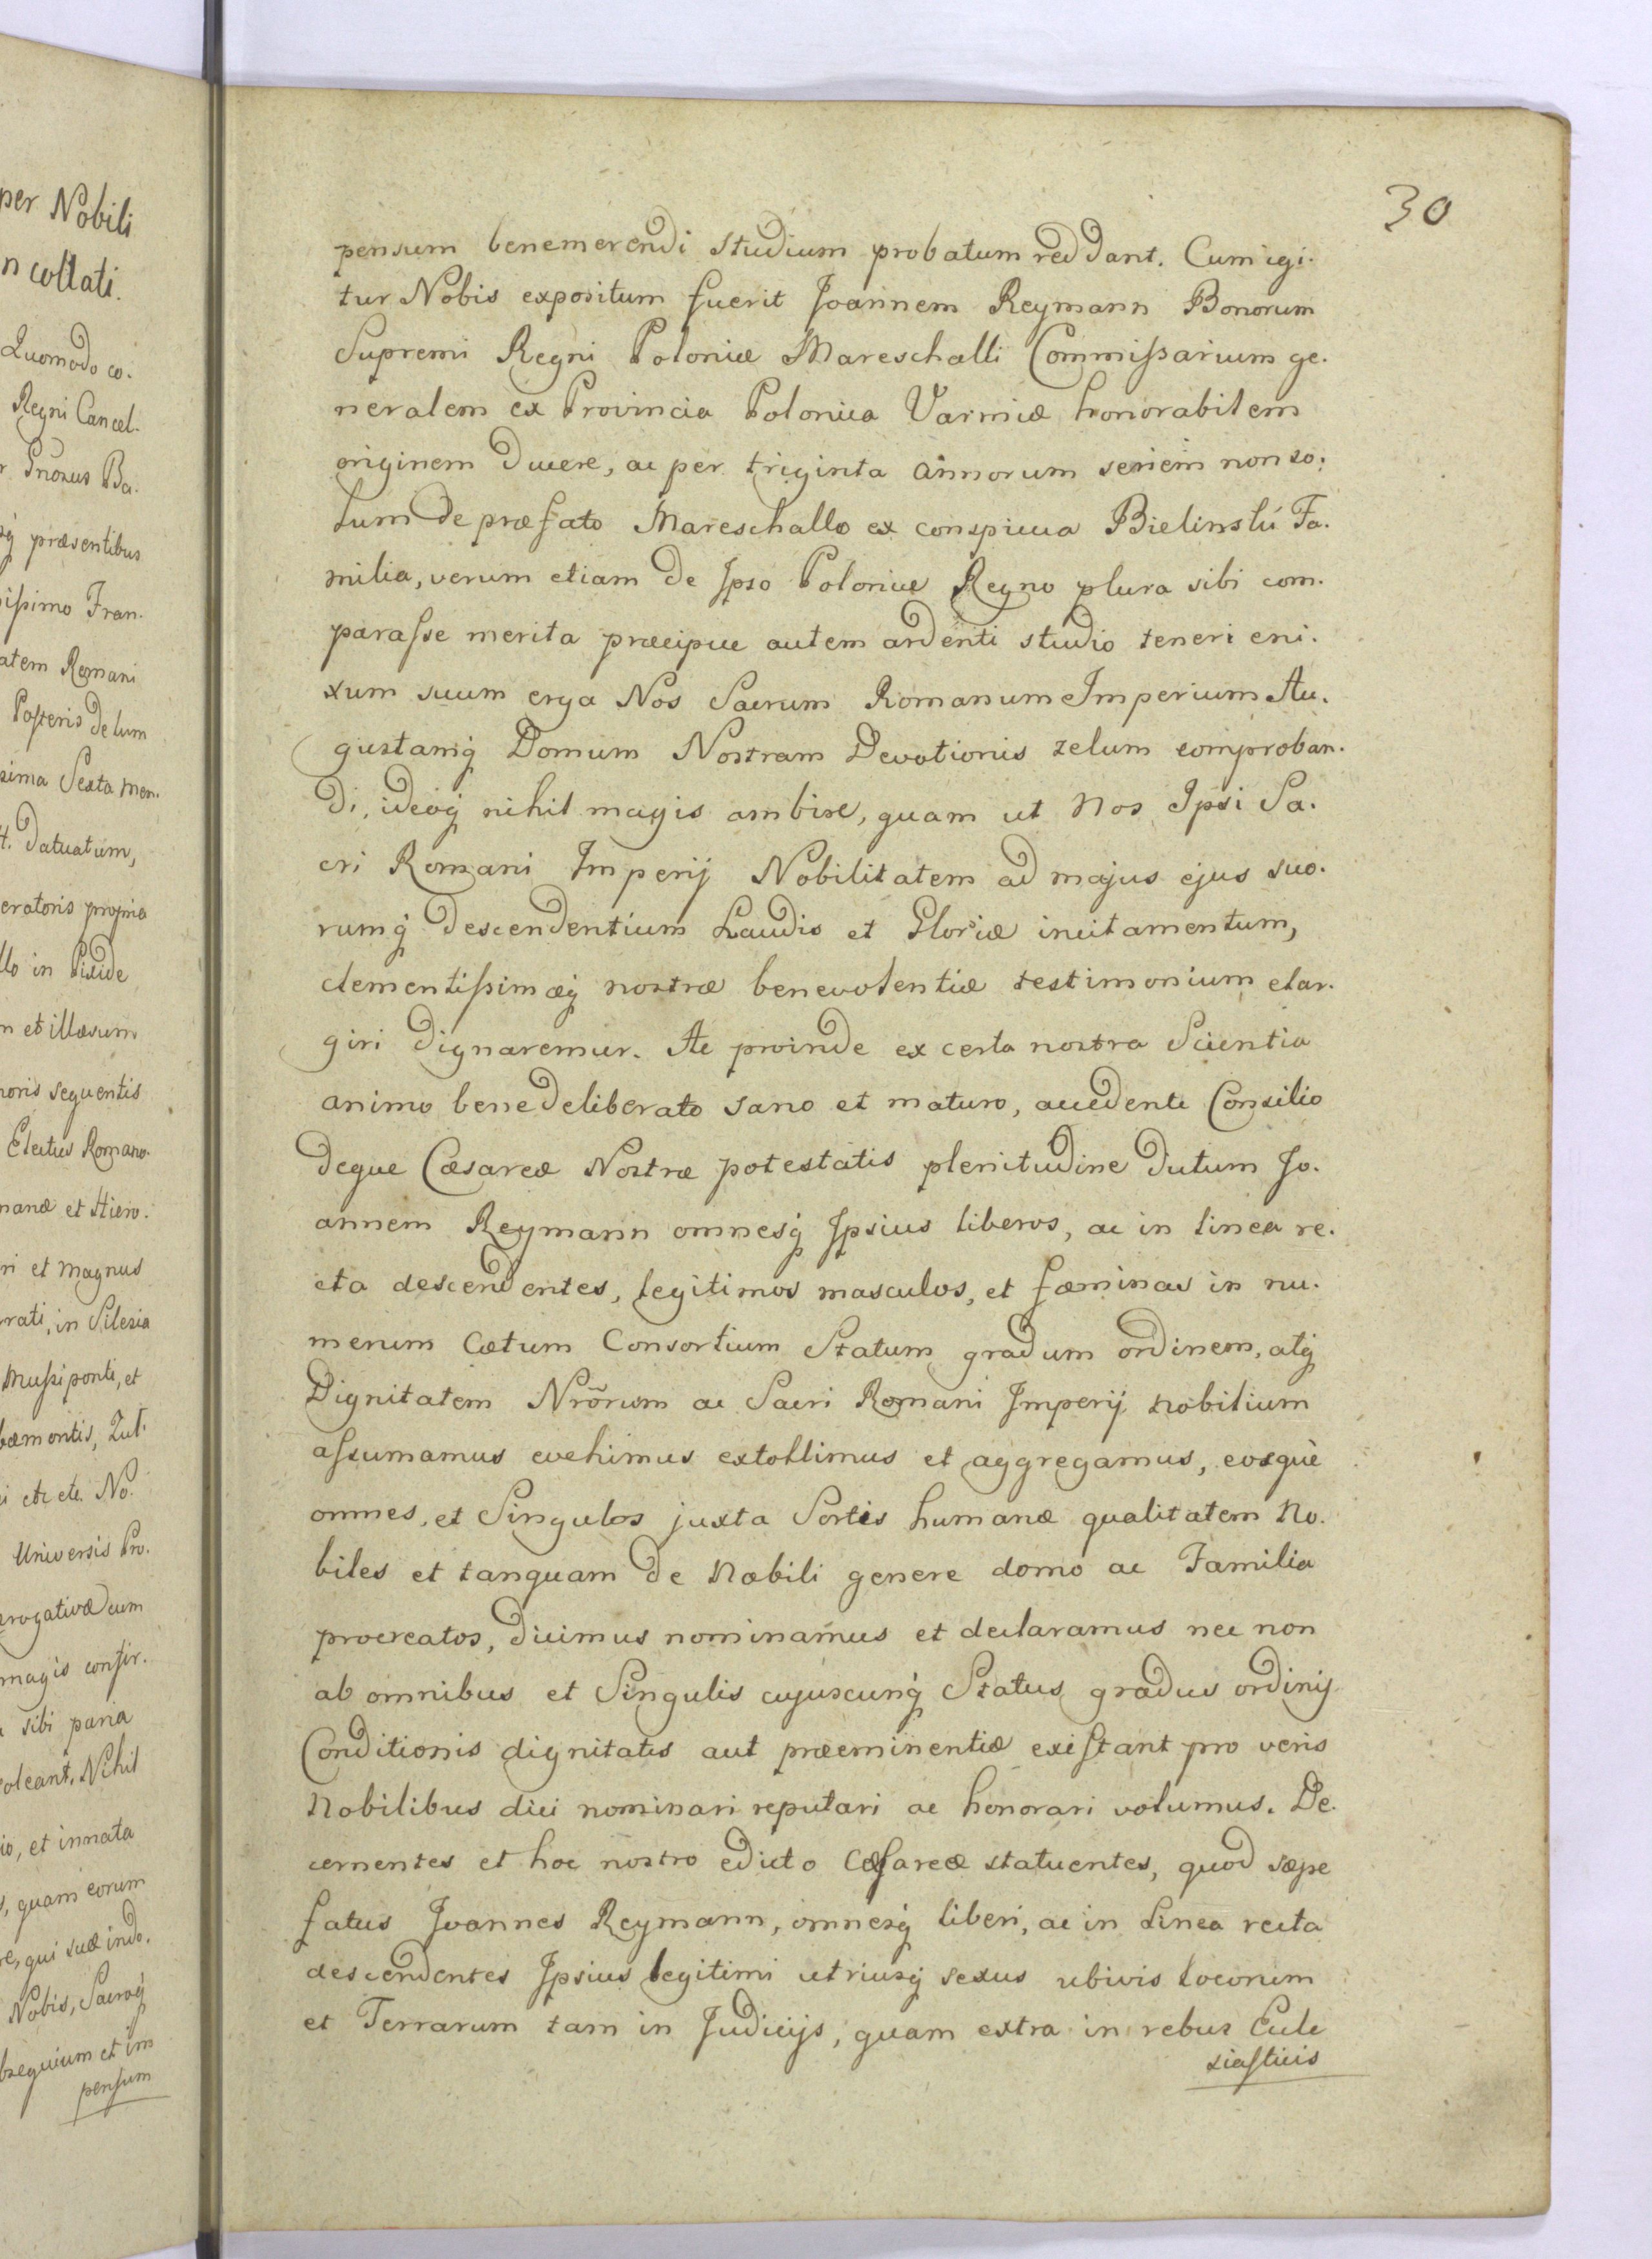 per Nobili
n collati.
Quomodo co.
Regni Cancel.
præsentibus
issimo Fran.
atem Romani
Posteris de lum
sima Sexta Men.
t. Datuatum,
eratoris propria
llo in Pixide
n et illæsum
noris sequentis
Electus Romano.
manæ et Hiero.
ri et Magnus
rati, in Silesia
Mussiponti, et
bæmontis, Zut.
i etc etc. No.
Universis Pro.
rrogativæ cum
magis confir.
sibi paria
oleant. Nihil
io, et innata
s, quam eorum
re, qui suæ indo.
Nobis, Sacroq́
bsequium et im
pensum
30
pensum benemerendi studium probatum reddant. Cum igi.
tur Nobis expositum fuerit Joannem Reymann Bonorum
Supremi Regni Poloniæ Mareschalli Commissarium ge.
neralem ex Provincia Polonica Varmiæ honorabilem
originem ducere, ac per triginta annorum seriem non so.
lum de præfato Mareschallo ex conspicua Bielinskii Fa.
milia, verum etiam de Ipso Poloniæ Regno plura sibi com.
parasse merita præcipue autem ardenti studio teneri eni.
xum suum erga Nos Sacrum Romanum Imperium Au.
gustamq́ Domum Nostram Devotionis zelum comproban.
di, ideoq́ nihil magis ambire, quam ut Nos Ipsi Sa.
cri Romani Imperij Nobilitatem ad majus ejus suo.
rumq́ descendentium Laudis et Gloriæ incitamentum,
clementissimæq́ nostræ benevolentiæ testimonium elar.
giri dignaremur. Ac proinde ex certa nostra Scientia
animo bene deliberato sano et maturo, accedente Consilio
deque Cæsareæ Nostræ potestatis plenitudine dictum Jo.
annem Reymann omnesq́ Ipsius liberos, ac in linea re.
cta descendentes, legitimos masculos, et fæminas in nu.
merum Cætum Consortium Statum gradum ordinem, atq́
Dignitatem Nrõrum ac Sacri Romani Imperij nobilium
assumamus evehimus extollimus et aggregamus, eosquè
omnes, et Singulos juxta Sortis humanæ qualitatem No.
biles et tanquam de Nobili genere domo ac Familia
procreatos, dicimus nominamus et declaramus nec non
ab omnibus et Singulis cujuscunq́ Status gradus ordinis
Conditionis dignitatis aut præeminentiæ existant pro veris
Nobilibus dici nominari reputari ac honorari volumus. De.
cernentes et hoc nostro edicto Cæsareæ statuentes, quod sæpe
fatus Joannes Reymann, omnesq́ liberi, ac in Linea recta
descendentes Ipsius legitimi utriusq́ sexus ubivis locorum
et Terrarum tam in Judicijs, quam extra in rebus Eccle
siasticis